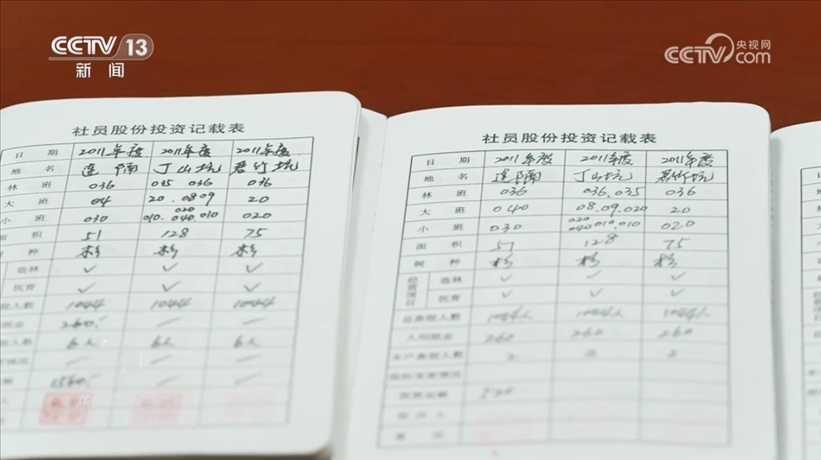 CCTV 13
新闻
央视网
CCTV.com
社员股份投资记载表
日期 2011年度 2011年度 2011年度
地名 丁山坑 君竹坑
林班 036 035 036 036
大班 04 20.08.09 20
小班 030 020 010.040.010 020
面积 51 128 75
树种 杉 杉 杉
造林 ✓ ✓ ✓
抚育 ✓ ✓ ✓
人数 1044 1044 1044
股金 260 — —
人数 6人 6人 6人
1560
社员股份投资记载表
日期 2011年度 2011年度 2011年度
地名 丁山坑 君竹坑
林班 036 036.035 036
大班 040 08.09.020 20
小班 030 020 040.010.010 020
面积 51 128 75
树种 杉 杉 杉
经营项目 造林 ✓ ✓ ✓
抚育 ✓ ✓ ✓
总参股人数 1044人 1044人 1044人
人均股金 260 260 260
本户参股人数 2
520